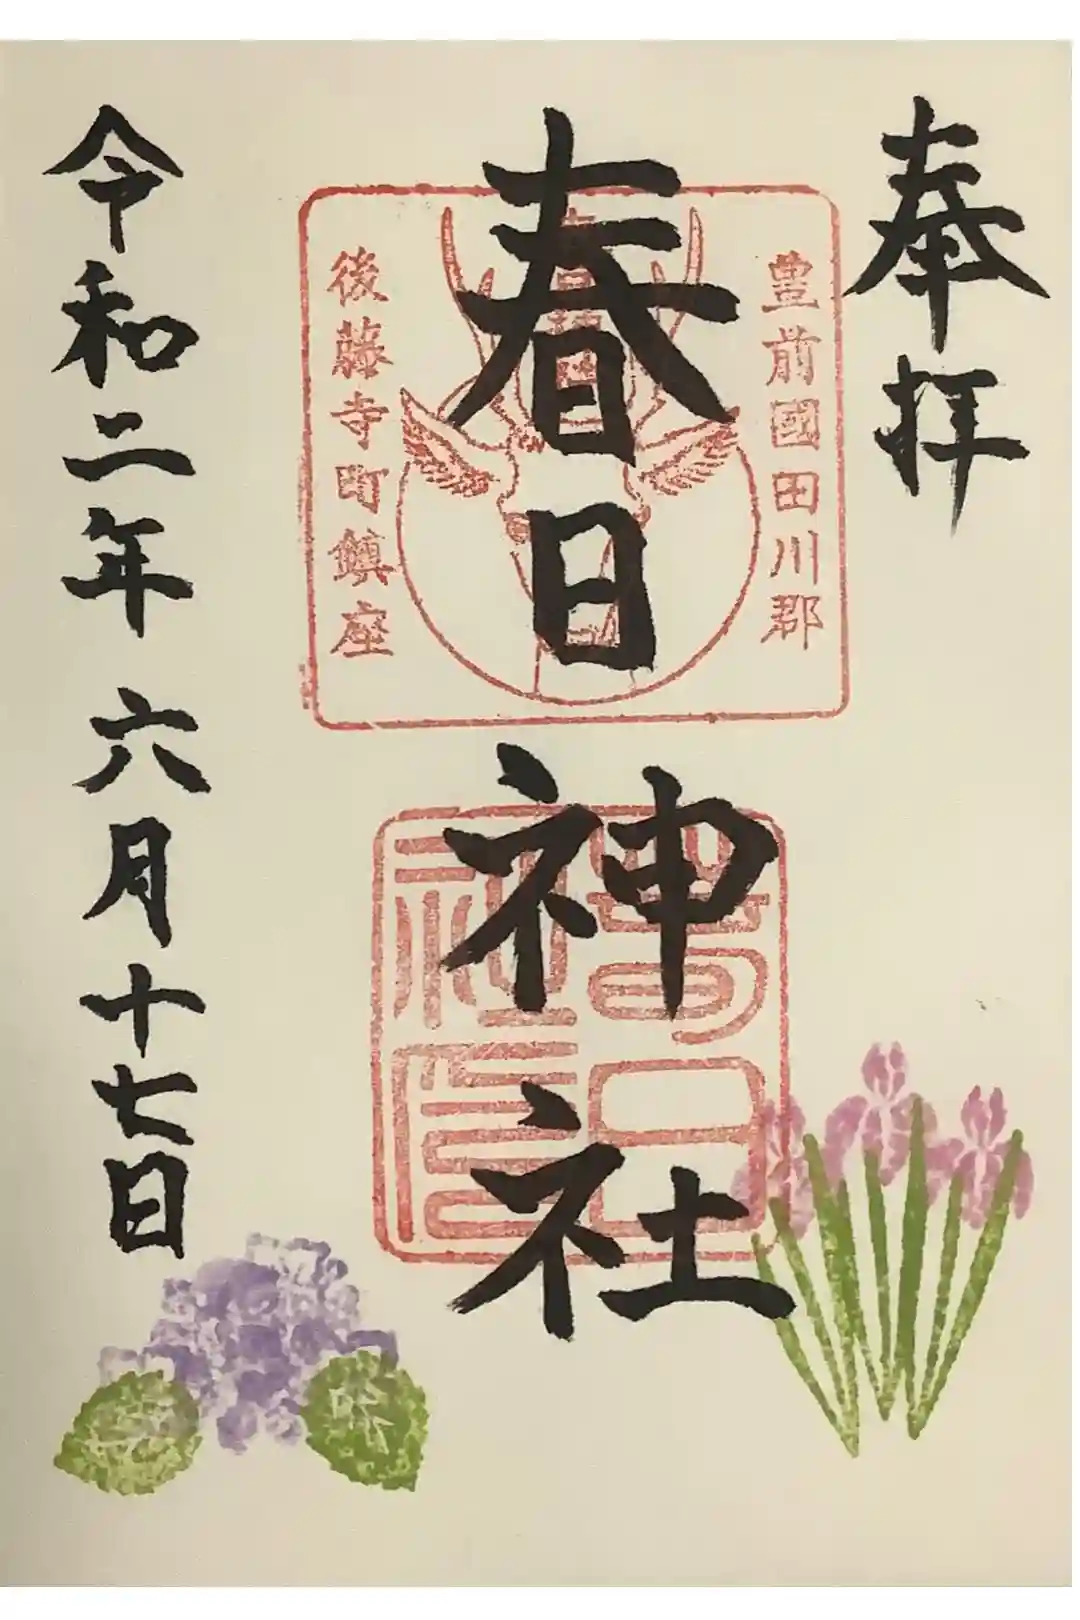 奉拝
豊前國田川郡
春日神社
後藤寺町鎮座
令和二年六月十七日